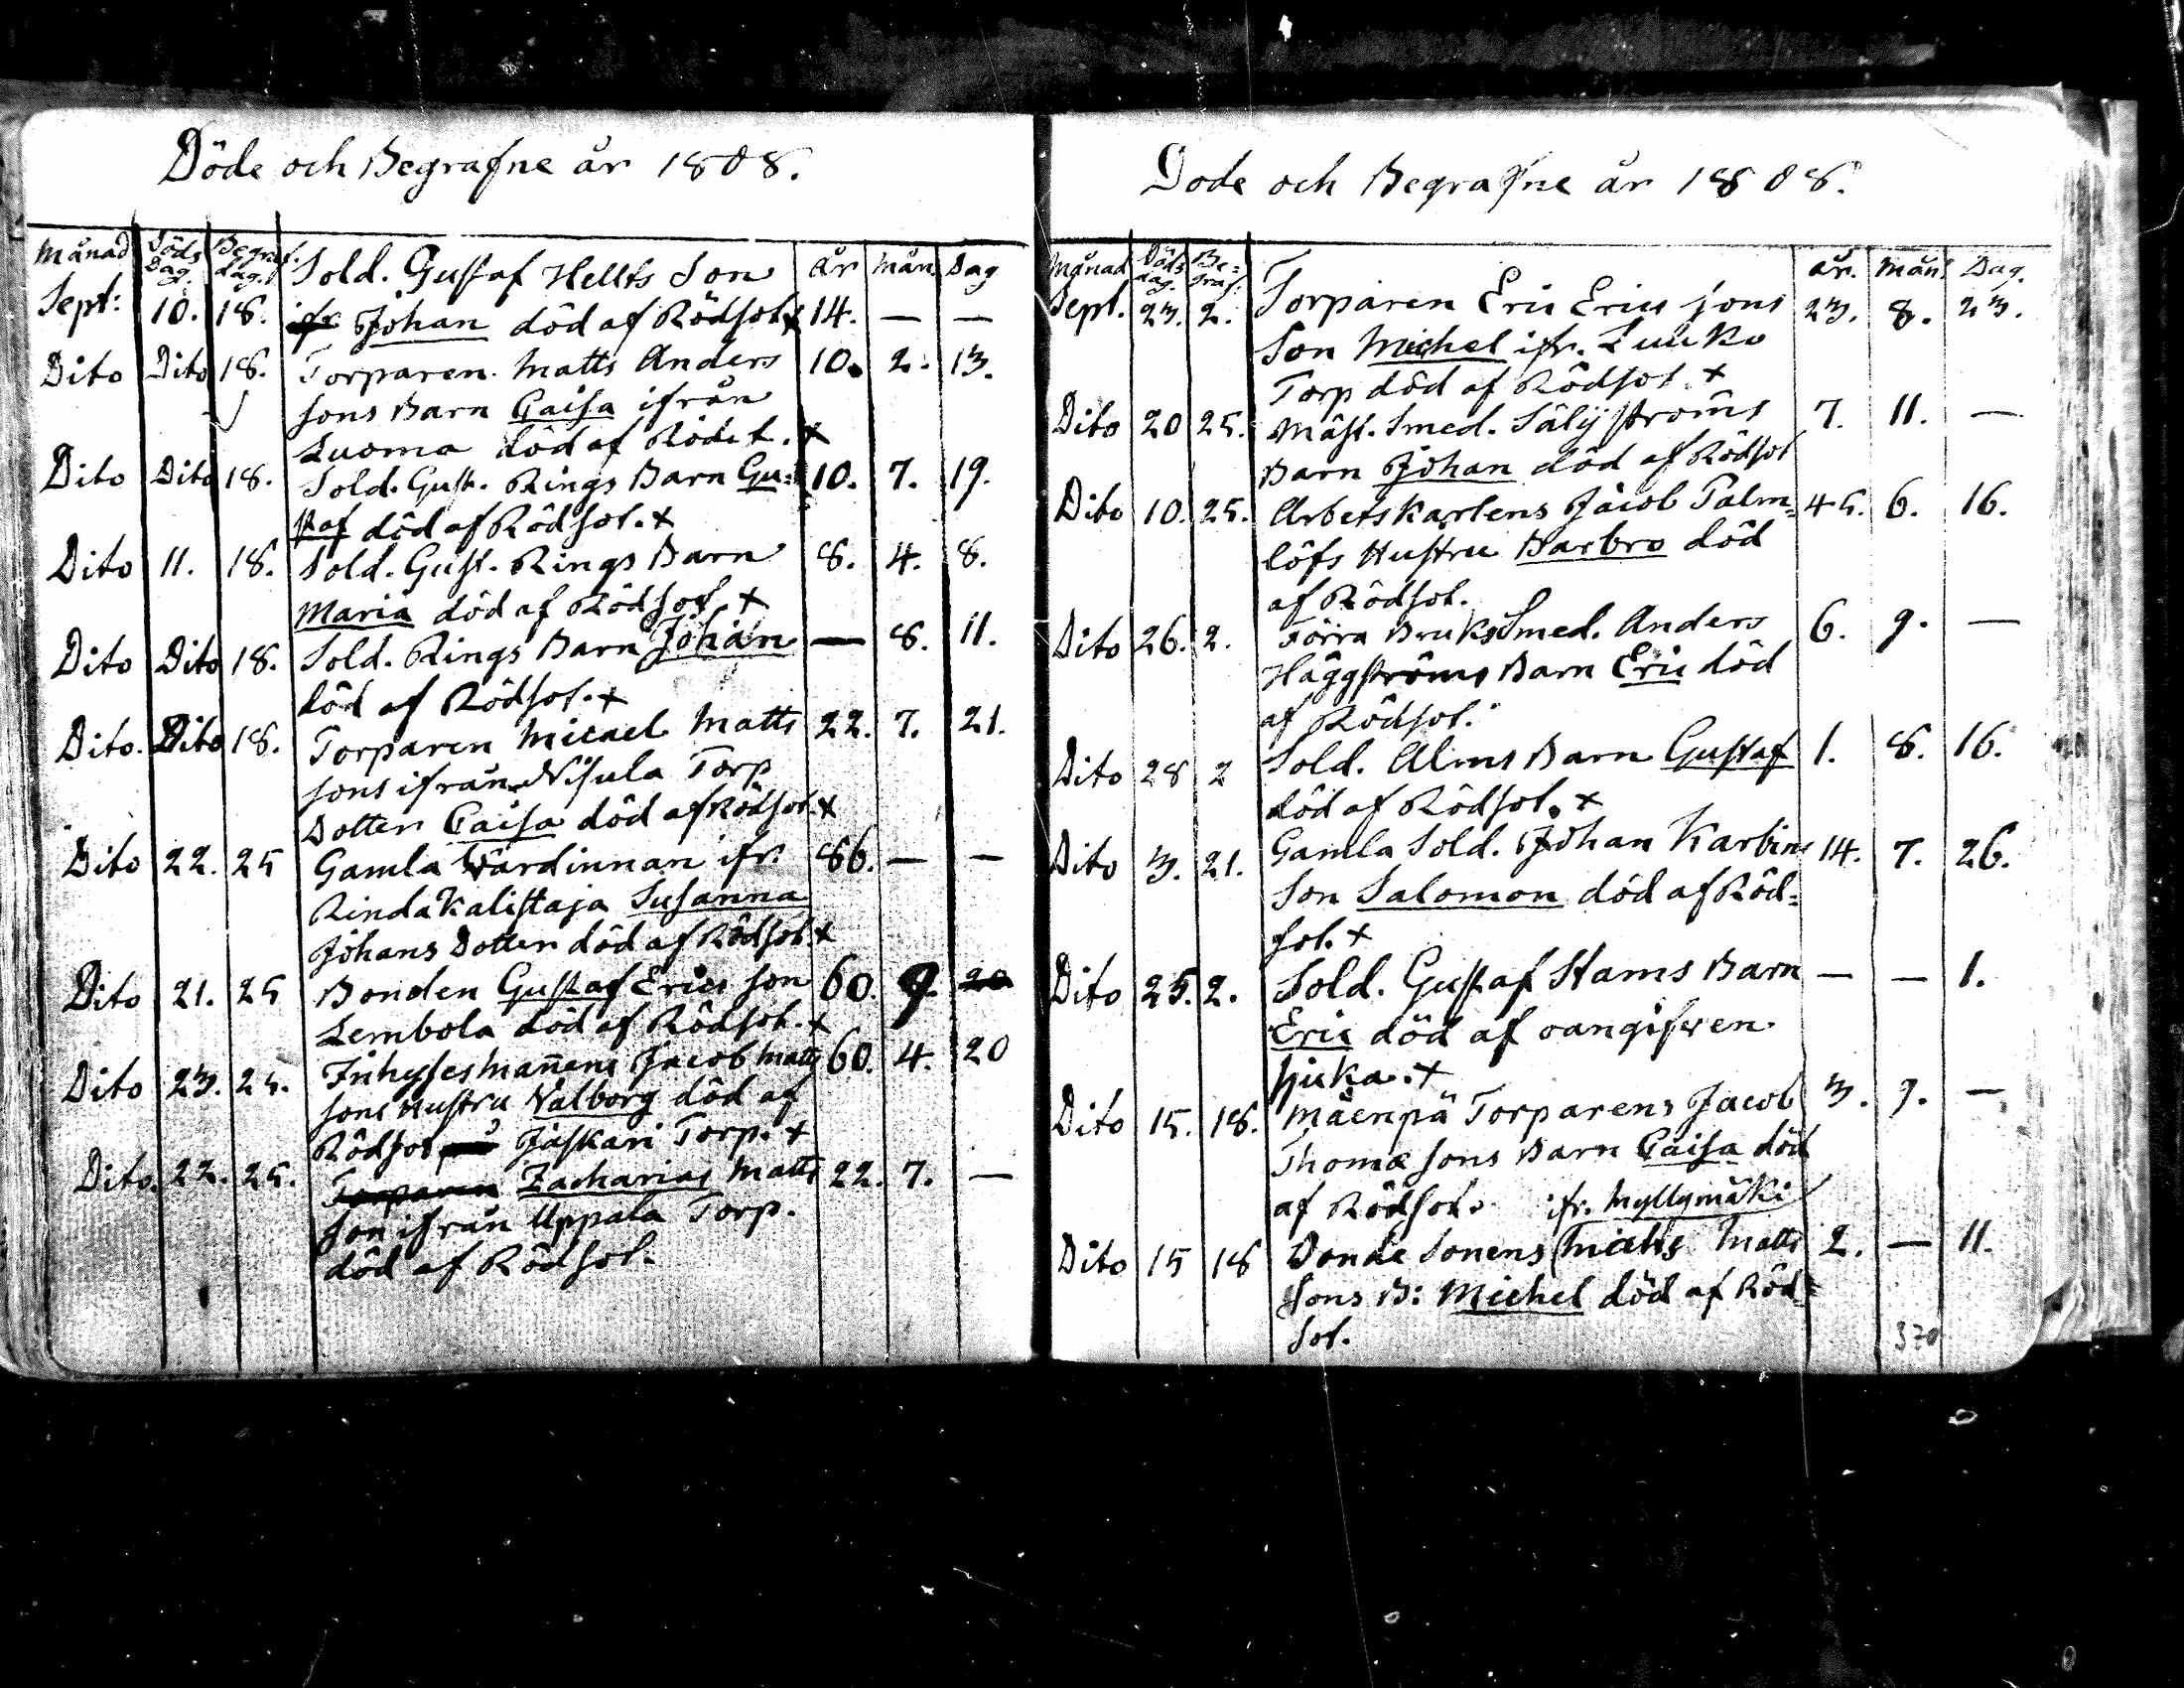 Döde och Begrafne år 1808.
Månad Döds Dag. Begraf. dag. År Mån Dag
Sept: 10. 18. Sold. Gustaf Hellts Son
Johan död af Rödsot x 14. — —
Dito Dito 18. Torparen Matts Anders 10. 2. 13.
sons Barn Caisa ifrån
Luoma död af Rödst. x
Dito Dito 18. Sold. Gust. Rings Barn Gu= 10. 7. 19.
staf död af Rödsot. x
Dito 11. 18. Sold. Gust. Rings Barn 8. 4. 8.
Maria död af Rödsot. x
Dito Dito 18. Sold. Rings Barn Johan — 8. 11.
död af Rödsot. x
Dito. Dito 18. Torparen Micael Matts 22. 7. 21.
sons ifrån Nisula Torp
Dotter Caisa död af Rödsot x
Dito 22. 25 Gamla Wärdinnan ifr. 86. — —
Rindakalistaja Susanna
Johans Dotter död af Rödsot x
Dito 21. 25 Bonden Gustaf Erics son 60. 9. 20
Lembola död af Rödsot. x
Dito 23. 25. Inhysesmañens Jacob Matts 60. 4. 20
sons Hustru Valborg död af
Rödsot Jaskari Torp. x
Dito. 22. 25. Torparen Zacharias Matts 22. 7. —
son ifrån Uppala Torp.
död af Rödsot.
Döde och Begrafne år 1808.
Månad Döds dag. Be= graf. år. Mån. Dag.
Sept. 23. 2. Torparen Eric Erics sons 23. 8. 23.
Son Michel ifr. Luuko
Torp död af Rödsot. x
Dito 20 25. Mäst. Smed. Säljströms 7. 11. —
Barn Johan död af Rödsot
Dito 10. 25. Arbetskarlens Jacob Palm= 45. 6. 16.
löfs Hustru Barbro död
af Rödsot.
Dito 26. 2. Förra BruksSmed. Anders 6. 9. —
Häggströms Barn Eric död
af Rödsot.
Dito 28 2 Sold. Alms Barn Gustaf 1. 8. 16.
död af Rödsot. x
Dito 3. 21. Gamla Sold. Johan Karbins 14. 7. 26.
Son Salomon död af Röd=
sot. x
Dito 25. 2. Sold. Gustaf Stams Barn — — 1.
Eric död af oangifven
sjuka. x
Dito 15. 18. Mäenpä Torparens Jacob 3. 9. —
Thomæ sons Barn Caisa död
af Rödsot. ifr. Myllymäki
Dito 15 18 Bonde Sonens Matts 2. — 11.
Sons B: Michel död af Röd=
sot.
370